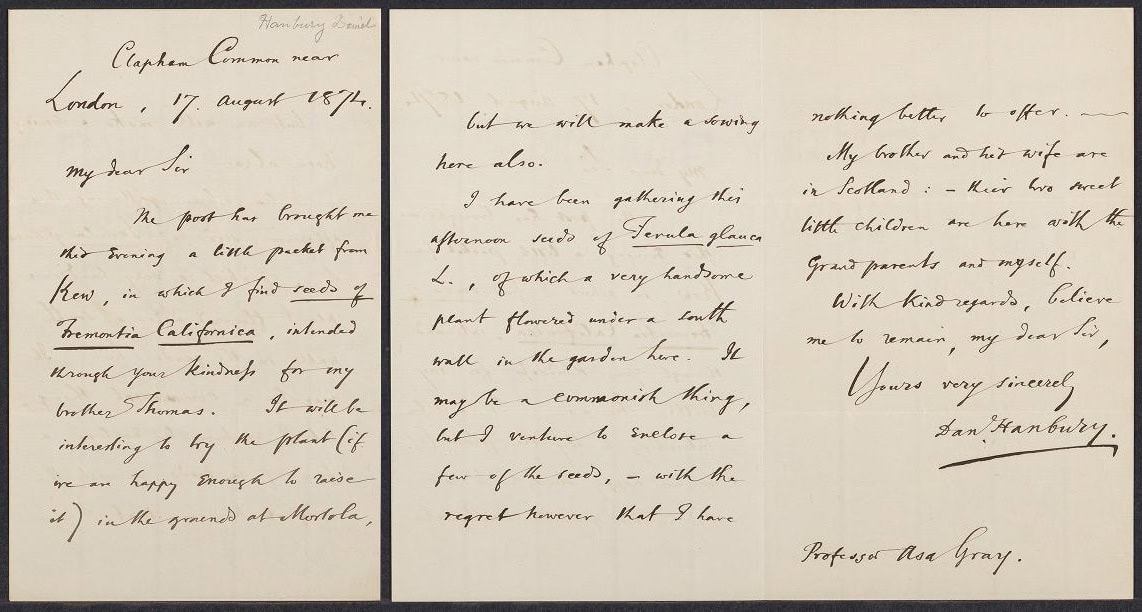 Hanbury Daniel
Clapham Common near
London, 17. August 1874.
My dear Sir
The post has brought me
this Evening a little packet from
Kew, in which I find seeds of
Fremontia Californica, intended
through your kindness for my
brother Thomas. It will be
interesting to try the plant (if
we are happy Enough to raise
it) in the grounds at Mortola,
but we will make a sowing
here also.
I have been gathering this
afternoon seeds of Ferula glauca
L., of which a very handsome
plant flowered under a south
wall in the garden here. It
may be a commonish thing,
but I venture to Enclose a
few of the seeds, – with the
regret however that I have
nothing better to offer. —
My brother and his wife are
in Scotland: – their two sweet
little children are here with the
Grandparents and myself.
With kind regards, believe
me to remain, my dear Sir,
Yours very sincerely
Danl. Hanbury.
Professor Asa Gray.